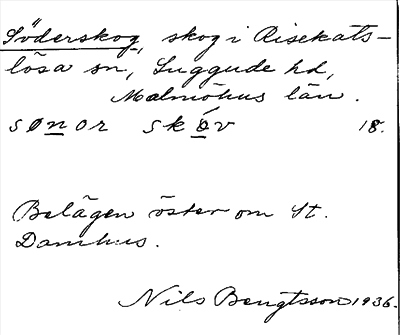 Söderskog, skog i Risekats-
lösa sn, Luggude hd,
Malmöhus län.
sønor skóv 18.
Belägen öster om St.
Damhus.
Nils Bengtsson 1936.